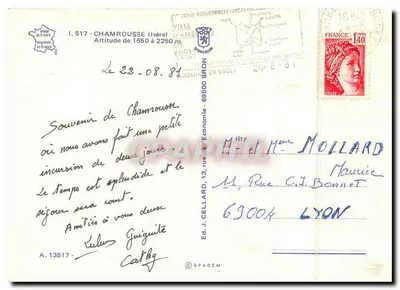 I. 517 - CHAMROUSSE (Isère)
Altitude de 1650 à 2250 m
VILLE
FRANCE
1,40
Le 22-08.81
Souvenir de Chamrousse
où nous avons fait une petite
incursion de deux jours
le temps est splendide et le
séjour sera court.
Amitiés à vous deux
Guiguite
Cathy
A. 13817
Ed. J. CELLARD, 13, rue de l'Economie - 69500 BRON
© SPADEM
Mr et Mme MOLLARD
Maurice
11 Rue C.J. Bonnet
69004 LYON